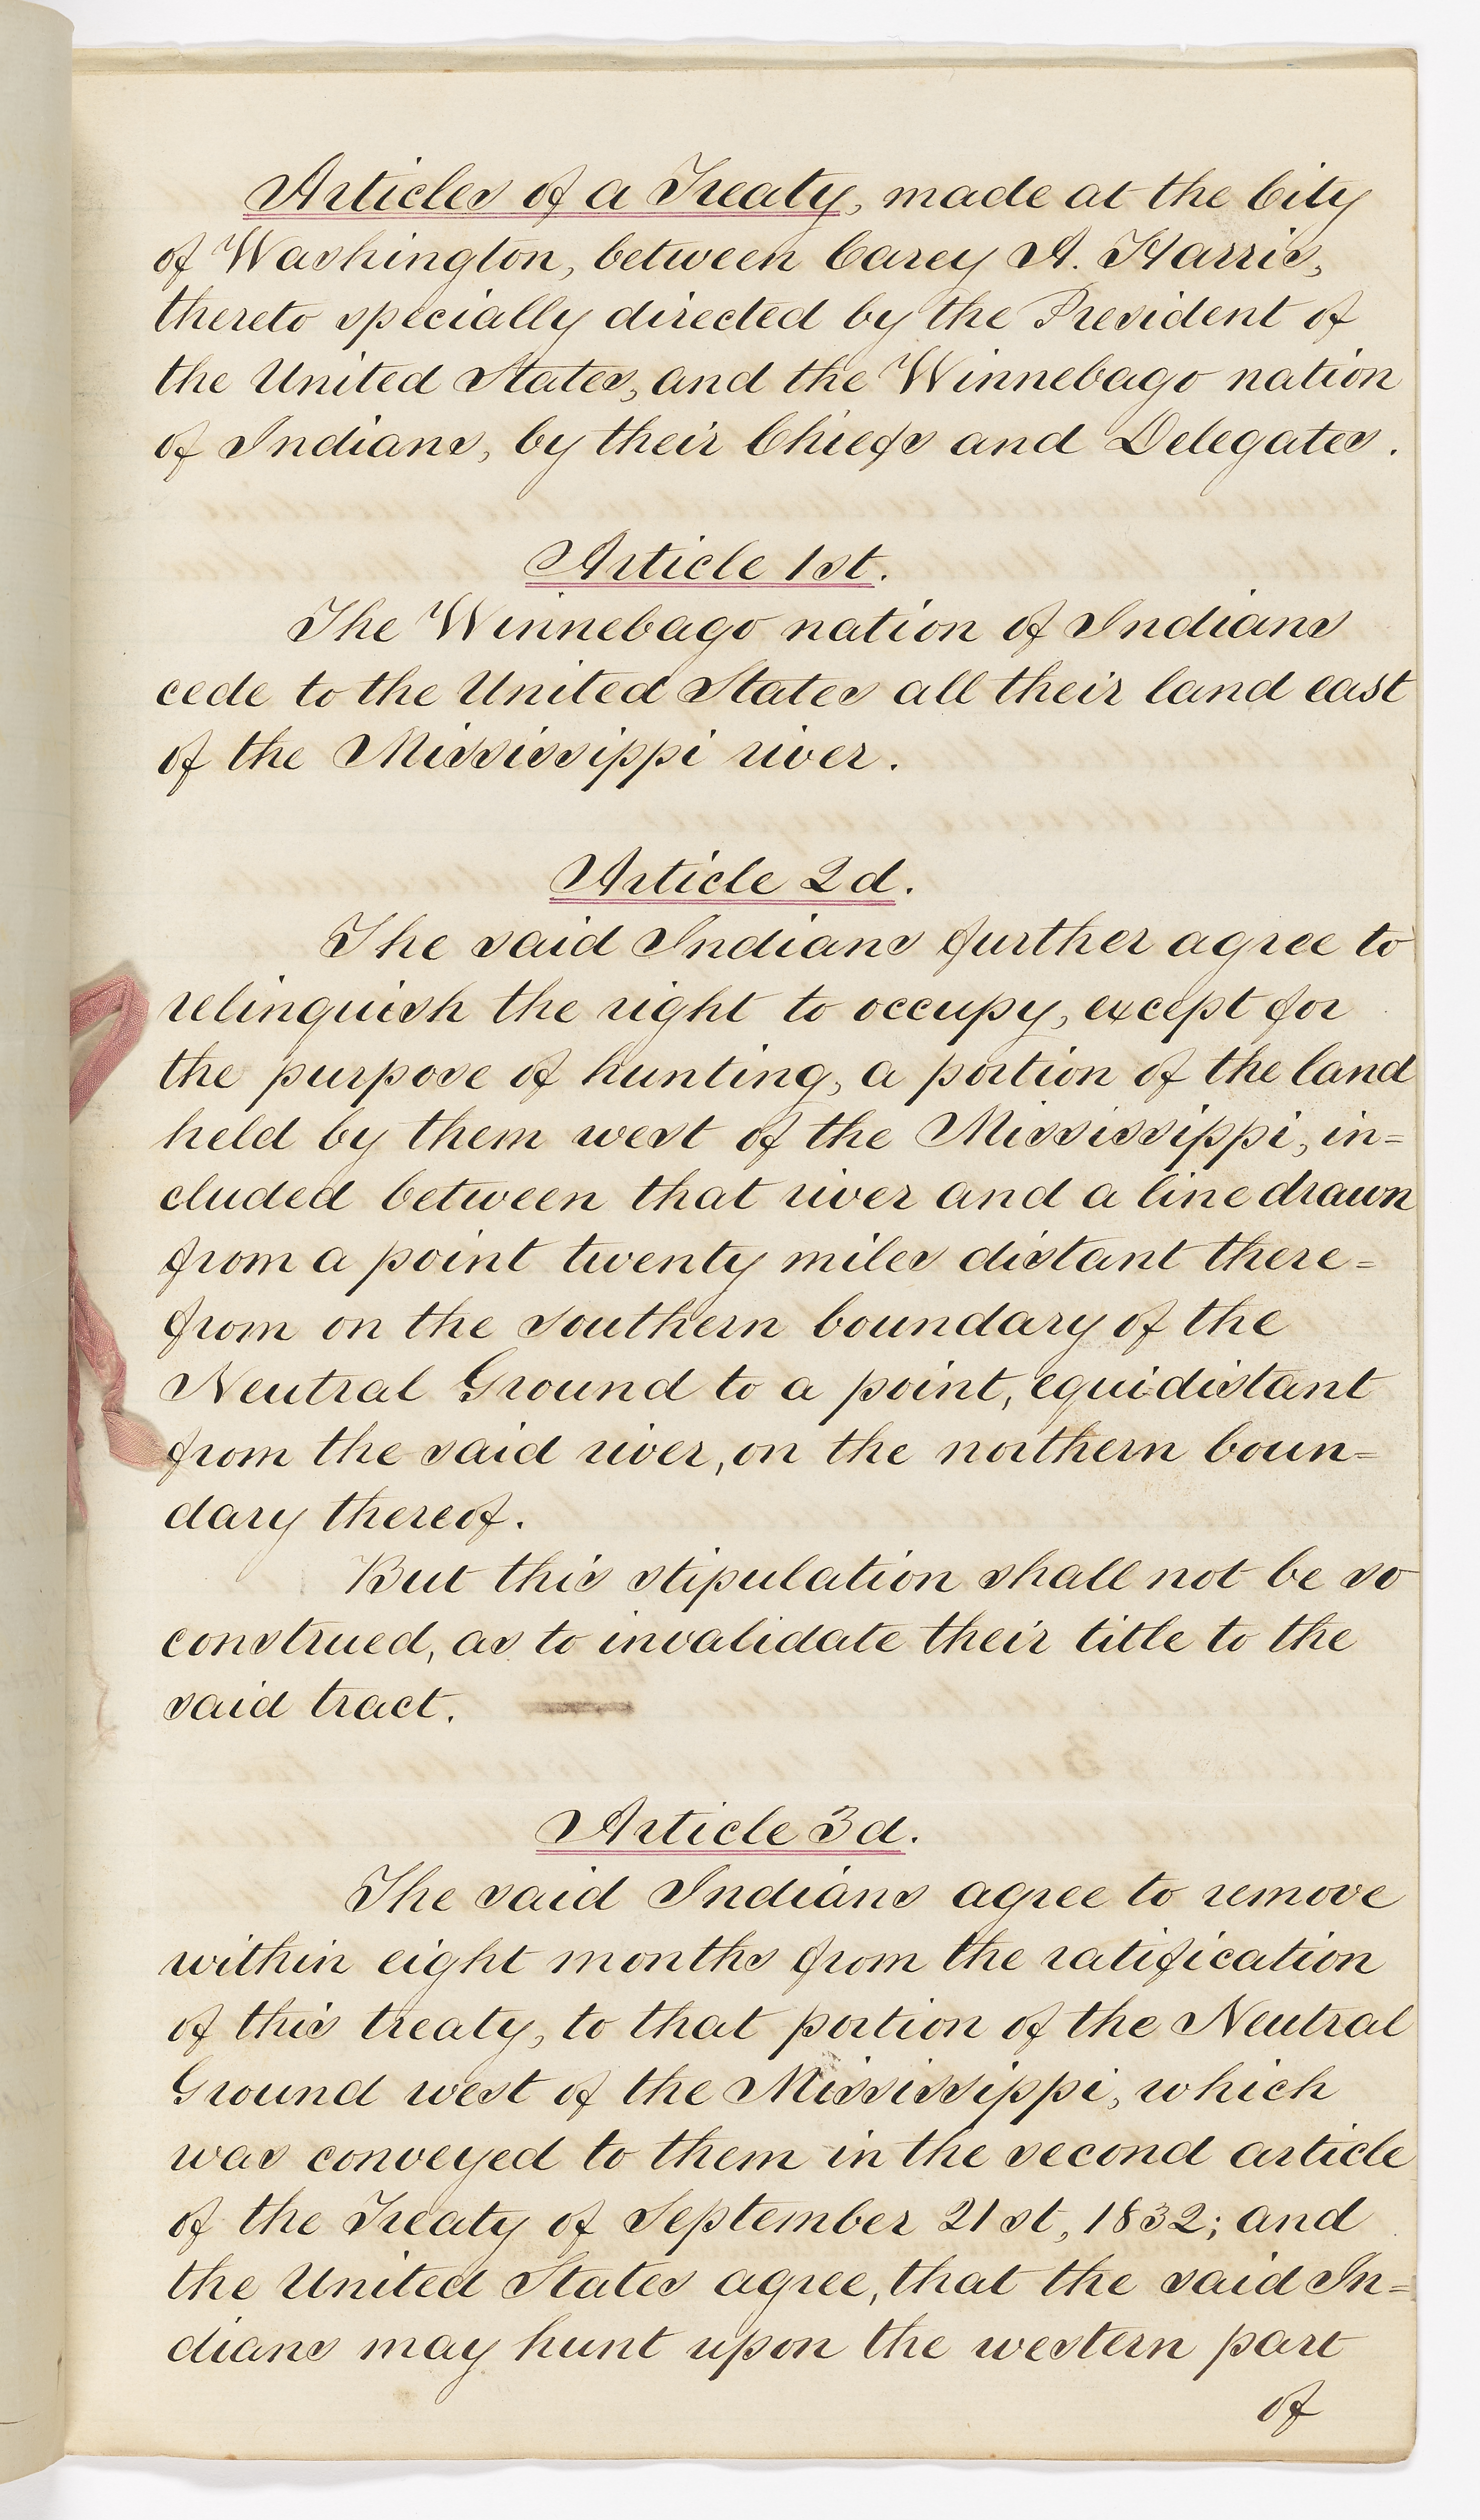 Articles of a Treaty, made at the City
of Washington, between Carey A. Harris,
thereto specially directed by the President of
the United States, and the Winnebago nation
of Indians, by their Chiefs and Delegates.
Article 1st.
The Winnebago nation of Indians
cede to the United States all their land east
of the Mississippi river.
Article 2d.
The said Indians further agree to
relinquish the right to occupy, except for
the purpose of hunting, a portion of the land
held by them west of the Mississippi, in=
cluded between that river and a line drawn
from a point twenty miles distant there=
from on the southern boundary of the
Neutral Ground to a point, equidistant
from the said river, on the northern boun=
dary thereof.
But this stipulation shall not be so
construed, as to invalidate their title to the
said tract.
Article 3d.
The said Indians agree to remove
within eight months from the ratification
of this treaty, to that portion of the Neutral
Ground west of the Mississippi, which
was conveyed to them in the second article
of the Treaty of September 21st, 1832; and
the United States agree, that the said In=
dians may hunt upon the western part
of